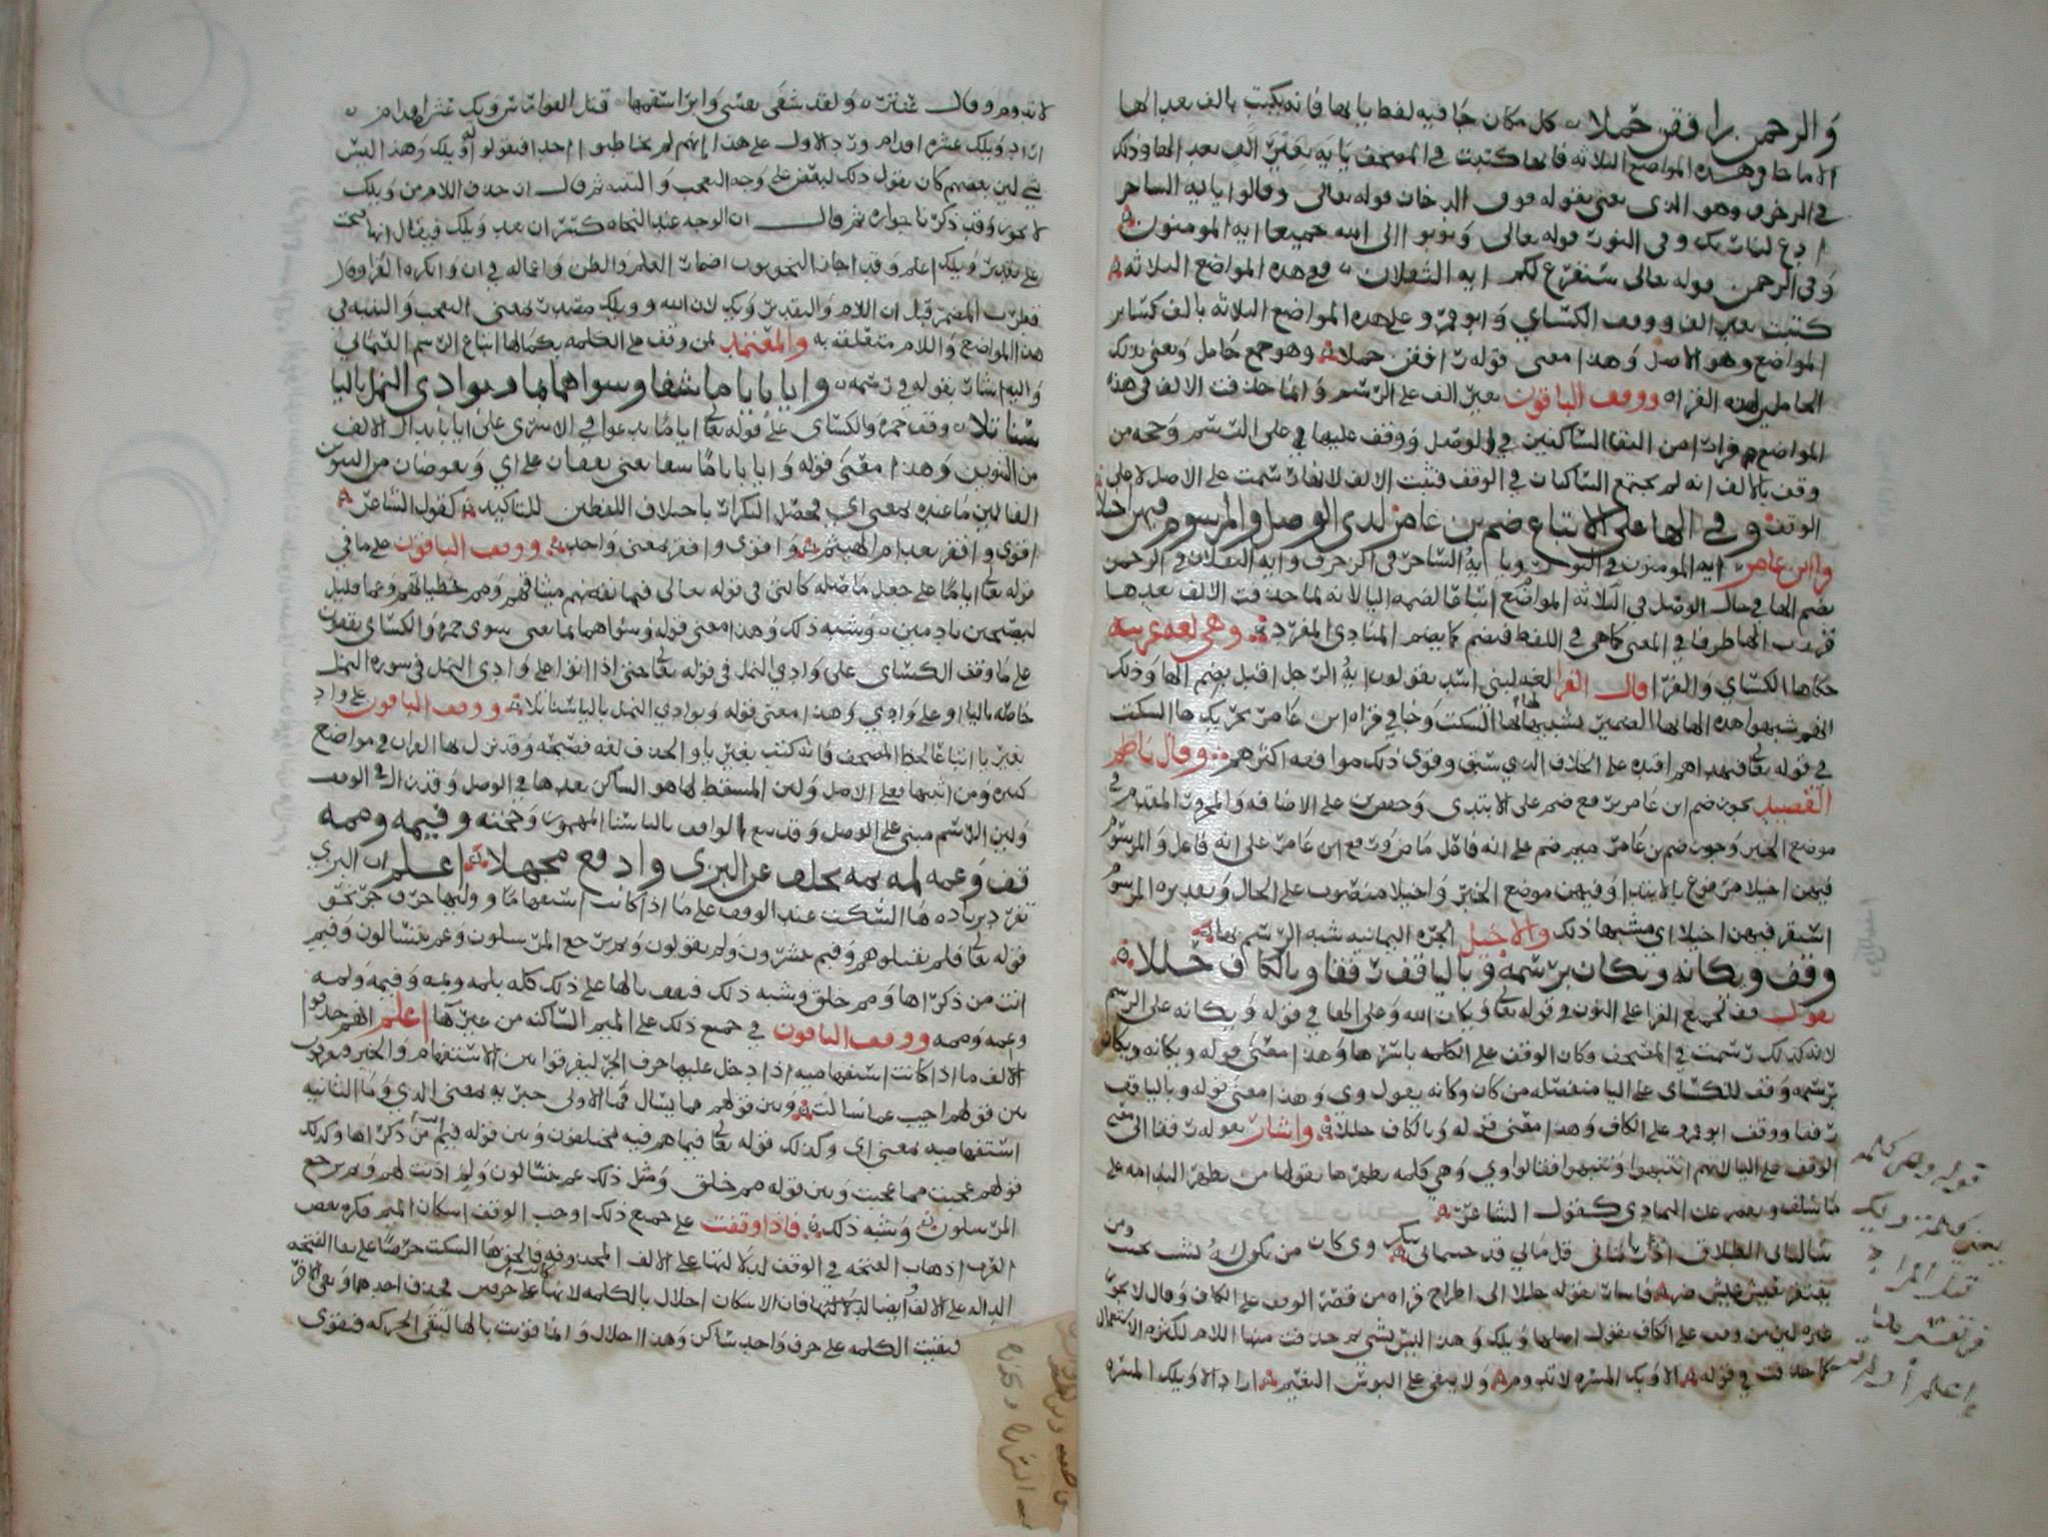 والرحمن رافقن حملا كل مكان جا فيه لفظ يا ايها فانه يكتب بالف بعد الها
الا ما خلا هذه المواضع الثلاثه فانها كتبت في المصحف يا يه بغير الف بعد الها وذلك
في الزخرف وهو الذي يعني بقوله فوق الدخان قوله تعالى وقالوا يا ايه الساحر
ادع لنا ربك وفي النور قوله تعالى وتوبوا الى الله جميعا ايه المومنون
وفي الرحمن قوله تعالى سنفرغ لكم ايه الثقلان ففي هذه المواضع الثلاثه
كتبت بغير الف ووقف الكسائي وابو عمرو على هذه المواضع الثلاثه بالف كسائر
المواضع وهو الاصل وهذا معنى قوله رافقن حملا وهو جمع حامل ويعني بذلك
الحاملين لهذه القراه ووقف الباقون بغير الف على الرسم وانما حذفت الالف في هذه
المواضع فرارا من التقا الساكنين في الوصل ووقف عليها في على الرسم وحجه من
وقف بالالف انه لم يجتمع الساكنان في الوقف فثبت الالف لانها رسمت على الاصل لا على
الوقف وفي الها على الاتباع ضم بن عامر لدى الوصل والمرسوم فيهن اخيلا
وابن عامر ايه المومنون في النور ويا ايه الساحر في الزخرف وايه الثقلان في الرحمن
بضم الها في حال الوصل في الثلاثه المواضع اتباعا لضمه اليا لانه لما حذفت الالف بعدها
قدرت الها طرفا في المعنى كما هي في اللفظ فيضم كما يضم المنادى المفرد وهي لغه عربيه
حكاها الكسائي والفرا قال الفرا لغه لبني اسد يقولون ايه الرجل اقبل بضم الها وذلك
انهم شبهوا هذه الها بها الضمير بشبهها بها السكت وجا في قراه ابن عامر تحريك ها السكت
في قوله تعالى فبهداهم اقتده على الخلاف الذي سبق وقوى ذلك موافقه اكثرهم وقال ناظم
القصيد يجوز ضم ابن عامر برفع ضم على الابتدى وخفض بن على الاضافه والمجرور المقدم في
موضع الخبر وجوز ضم بن عامر ميم ضم على انه فعل ماض ورفع ابن عامر على انه فاعل والمرسوم
فيهن اخيلا مرفوع بالابتدا وفيهن موضع الخبر واخيلا منصوب على الحال وتقديره المرسوم
استقر فيهن اخيلا اي مشبها ذلك والاخيل الحبره اليمانيه شبه الرسم بها
وقف ويكانه ويكان برسمه وباليا قف رفقا وبالكاف حللا
يقول قف لجميع القرا على النون في قوله تعالى ويكان الله وعلى الها في قوله ويكانه على الرسم
لانه كذلك رسمت في المصحف وكان الوقف على الكلمه باسرها وهذا معنى قوله ويكانه ويكان
برسمه وقف للكسائي على اليا منفصله من كان وكانه يقول وي وهذا معنى قوله وباليا قف
رفقا ووقف ابو عمرو على الكاف وهذا معنى قوله وبالكاف حللا واشار بقوله رفقا الى معنى
الوقف على اليا لانهم انتبهوا وتنبهوا فقالوا وي وهي كلمه يظهرها يقولها من يظهر الندامه على
ما سلف ويعبر عن التمادي كقول الشاعر
سالتاني الطلاق اذ راتاني قل مالي قد جيتماني بنكر وي كان من يكن له نشب يحبب ومن
يفتقر يعيش عيش ضر واشار بقوله حللا الى اطراح قراه من قصر الوقف على الكاف وقال لا يجوز
غيره لمن وقف على الكاف يقول اصلها ويلك وهذا ليس بشي ثم حذفت منها اللام لكثره الاستعمال
كما حذفت في قوله الا ويك المسره لا تدوم ولا يبقى على البوس النعيم اراد الا ويلك المسره
قوله وهي كلمه
لا تدوم وقال عنتره ولقد شفى نفسي وابرا سقمها قيل الفوارس ويك عنتر اقدم
اراد ويلك عنتره اقدم ورد الاول على هذا انهم لم يخاطبوا احدا فيقولوا له ويلك وهذا ليس
بشي لان بعضهم كان يقول ذلك لبعض على وجه التعجب والتنبه ثم قال ان حذف اللام من ويلك
لا يجوز وقد ذكرنا جوازه ثم قال ان الوجه عند النحاه كسر ان بعد ويلك فيقال انها فتحت
على تقدير ويلك اعلم وقد اجاز النحويون اضمار العلم والظن واعماله في ان وانكره الفرا وقال
قطرب المضمر قبل ان اللام والتقدير ويك لان الله وويك مقدره بمعنى التعجب والتنبه في
هذا المواضع واللام متعلقه به والمعتمد لمن وقف على الكلمه بكمالها اتباع الرسم العثماني
واليه اشار بقوله في رسمه وايا بايا ما شفا وسواهما بما وبوادي النمل باليا
سنا تلا وقف حمزه والكسائي على قوله تعالى ايا ما تدعوا في الاسرى على ايا بابدال الالف
من التنوين وهذا معنى قوله وايا بايا ما شفا يعني يقفان على اي ويعوضان من التنوين
الفا لان ما عنده بمعنى اي فحصل التكرار باختلاف اللفظين للتاكيد كقول الشاعر
اقوى واقفر بعد ام الهيثم واقوى واقفر بمعنى واحد ووقف الباقون على ما في
قوله تعالى ايا ما على جعل ما صله كالتي في قوله تعالى فبما نقضهم ميثاقهم ومما خطياتهم وعما قليل
ليصبحن نادمين وشبه ذلك وهذا معنى قوله وسواهما بما يعني سوى حمزه والكسائي يقفون
على ما وقف الكسائي على وادي النمل في قوله تعالى حتى اذا اتوا على وادي النمل في سوره النمل
خاصه باليا وعلى وادي وهذا معنى قوله وبوادي النمل باليا سنا تلا ووقف الباقون على واد
بغير يا اتباعا لخط المصحف فانه كتب بغير يا والحذف لغه فصيحه وقد نزل بها القران في مواضع
كثيره ومن اثبتها فعلى الاصل ولان المسقط لها هو الساكن بعدها في الوصل وقد زال في الوقف
ولان الرسم مبني على الوصل
قف وعمه لمه بمه بخلف عن البزي وادفع مجهلا اعلم ان البزي
تفرد بزياده ها السكت عند الوقف على ما اذا كانت استفهاما ووليها حرف جر نحو
قوله تعالى فلم تقتلوهم وفيم تبشرون ولم تقولون وبم يرجع المرسلون وعم يتسالون وفيم
انت من ذكراها ومم خلق وشبه ذلك فيقف بالها على ذلك كله بلمه وبمه وفيمه ولمه
وعمه وممه ووقف الباقون في جميع ذلك على الميم الساكنه من غير ها اعلم انهم حذفوا
الالف ما اذا كانت استفهاميه اذا دخل عليها حرف الجر ليفرقوا بين الاستفهام والخبر
بين قولهم اجب عما سالت وبين قولهم عما يسال فما الاولى خبريه بمعنى الذي وما الثانيه
استفهاميه بمعنى اي وكذلك قوله تعالى فيما هم فيه مختلفون وبين قوله فيم انت من ذكراها وكذلك
قولهم عجبت مما عجبت وبين قوله مم خلق ومثل ذلك عم يتسالون ولم اذنت لهم وبم يرجع
المرسلون وشبه ذلك فاذا وقفت على جميع ذلك اوجب الوقف اسكان الميم فكره بعض
العرب اذهاب الفتحه في الوقف لدلالتها على الالف المحذوفه فالحق ها السكت حرصا على بقا الفتحه
الداله على الالف وايضا فان الاسكان اخلال بالكلمه لانها كانت على حرفين فحذف احدهما وبقي الاخر
فبقيت الكلمه على حرف واحد ساكن وهذا اخلال وانما قويت بالها لتبقى الحركه فتقوى